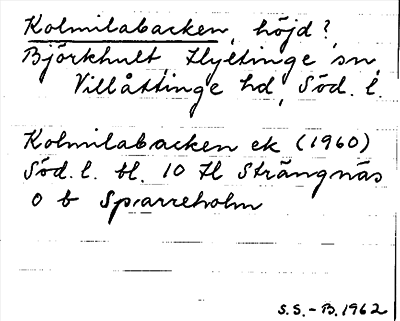 Kolmilabacken, höjd?,
Björkhult, Hyltinge sn,
Villåttinge hd, Söd. l.
Kolmilabacken ek (1960)
Söd. l. bl. 10 H Strängnäs
0 b Sparreholm
S.S. - B. 1962